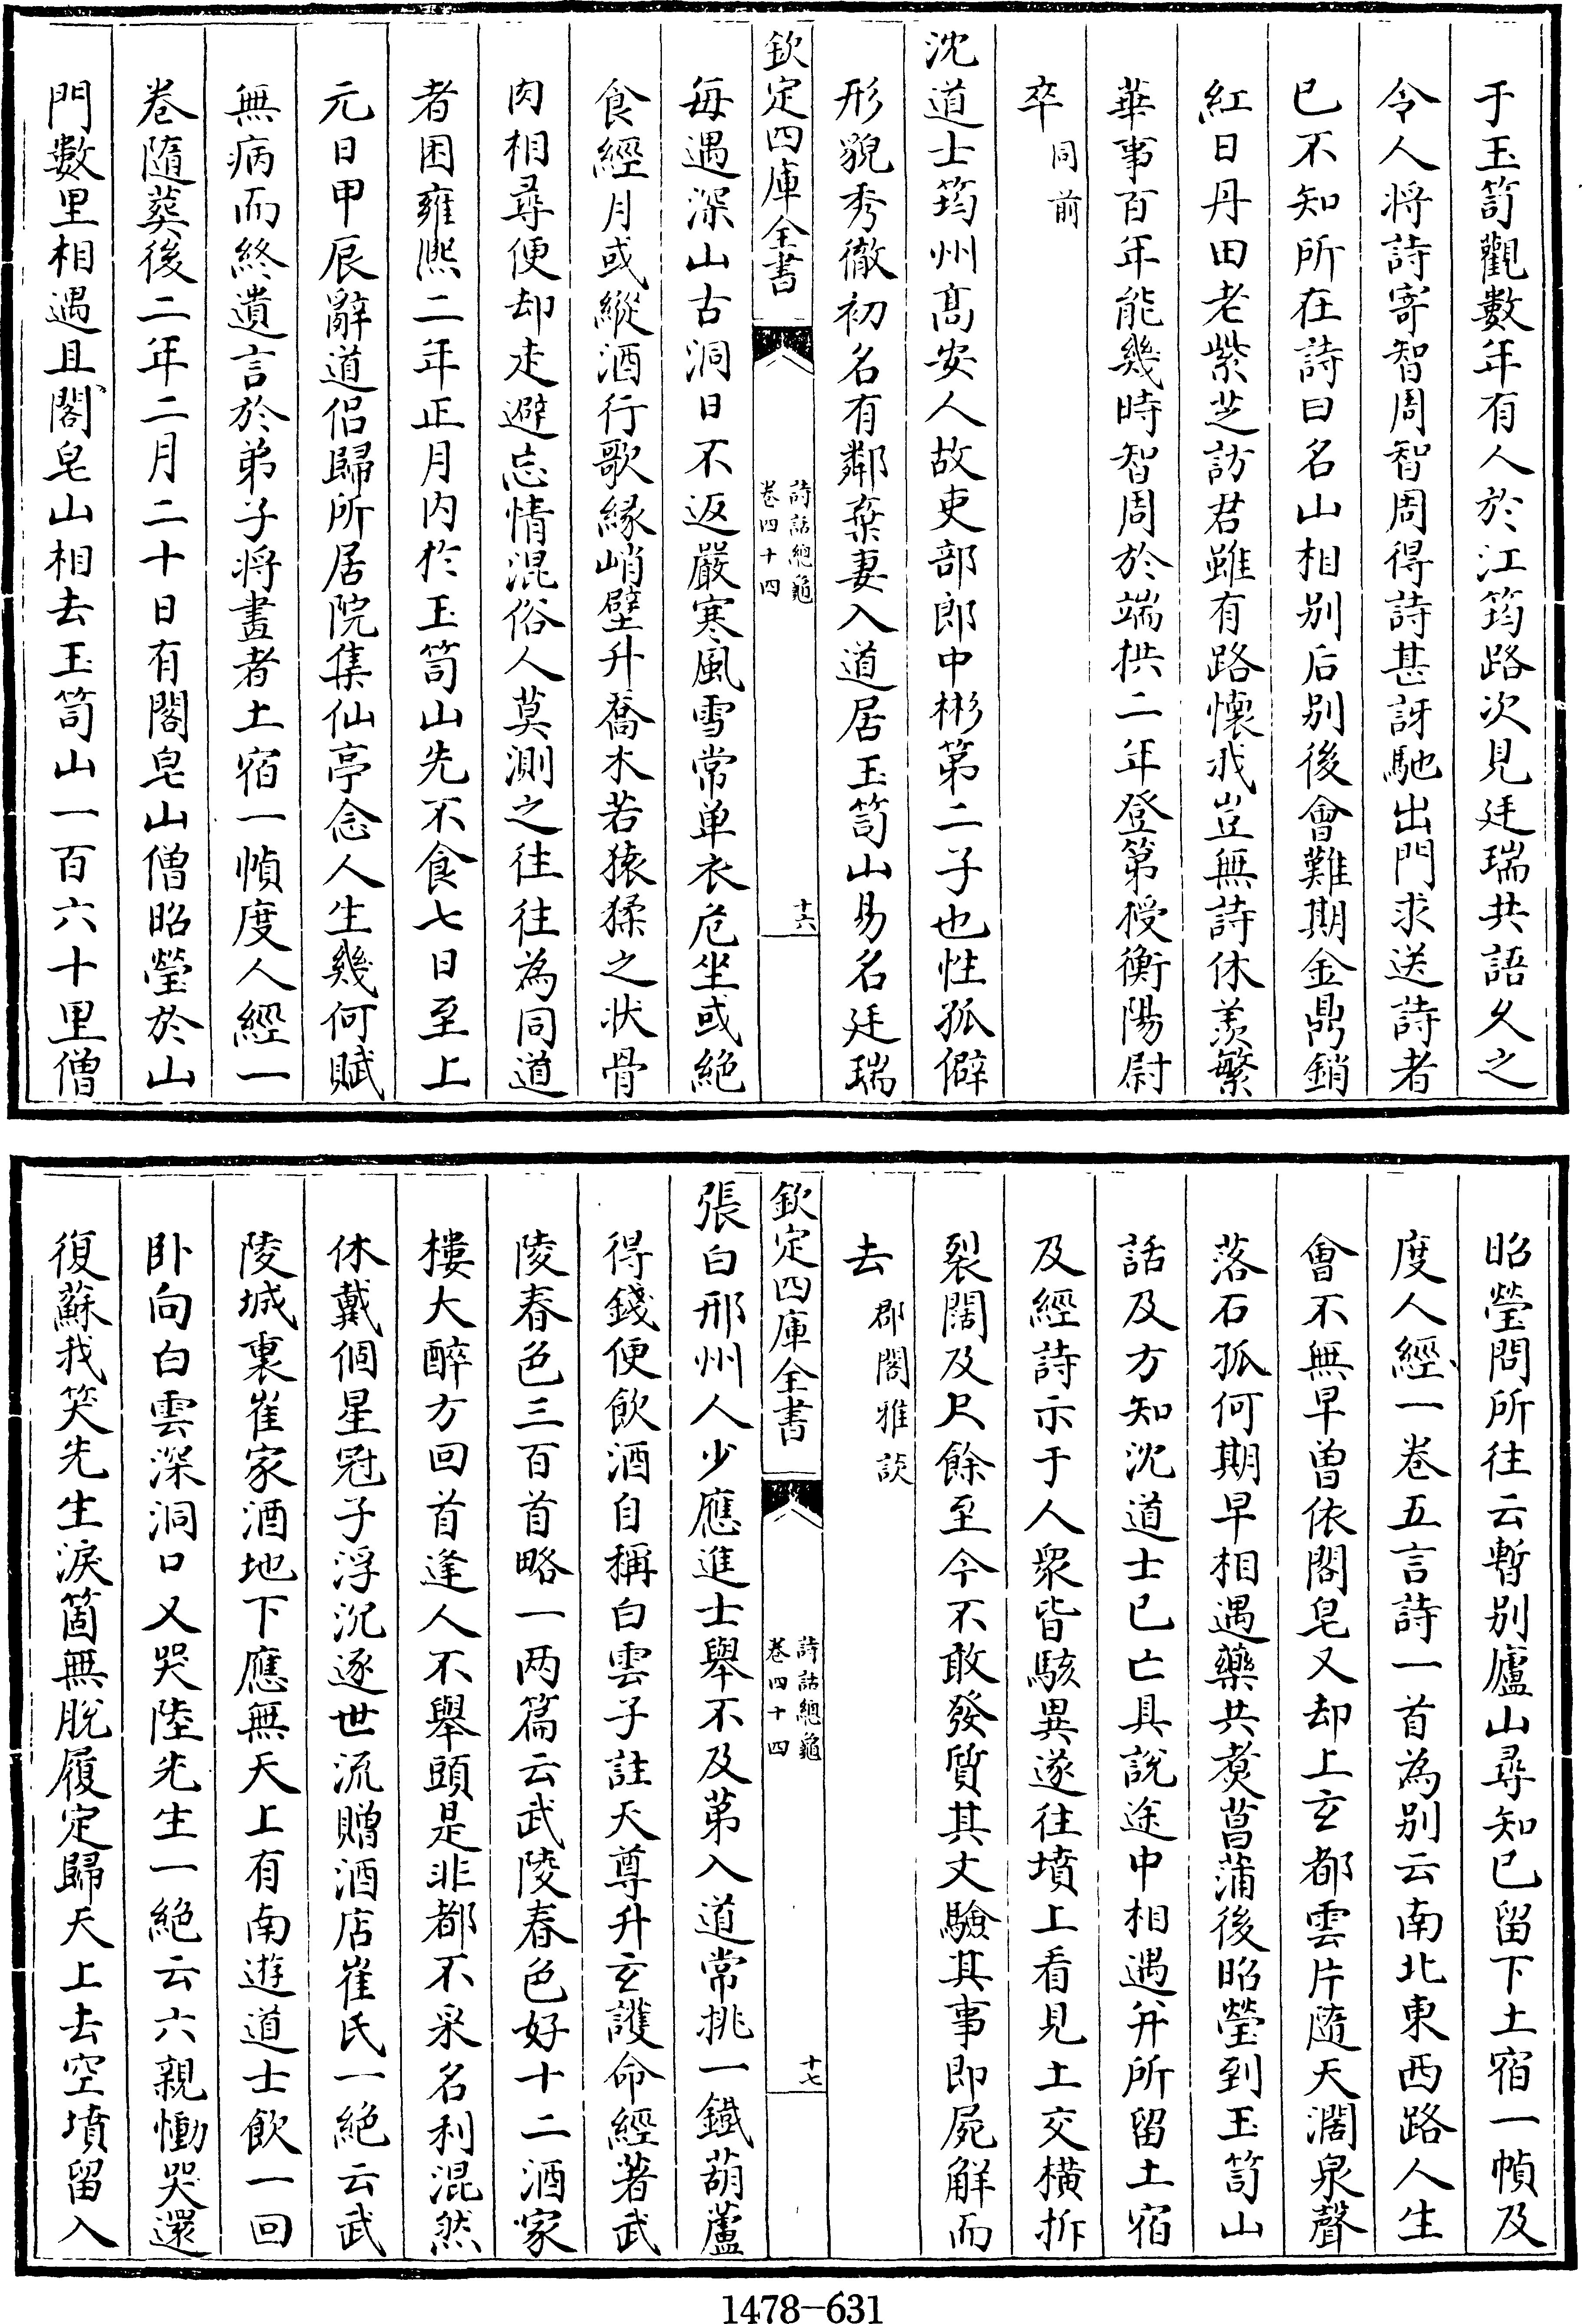 于玉笥觀數年有人於江筠路次見廷瑞共語久之
令人将詩寄智周智周得詩甚訝馳出門求送詩者
已不知所在詩曰名山相别后别後會難期金鼎銷
紅日丹田老紫芝訪君雖有路懷我豈無詩休羨繁
華事百年能幾時智周於端拱二年登第授衡陽尉
卒同前
沈道士筠州髙安人故吏部郎中彬第二子也性孤僻
形貌秀徹初名有鄰棄妻入道居玉笥山易名廷瑞
欽定四庫全書
詩話總龜
卷四十四
十六
每遇深山古洞日不返嚴寒風雪常单衣危坐或絶
食經月或縱酒行歌緣峭壁升喬木若猿猱之状骨
肉相尋便却走避忘情混俗人莫測之往往為同道
者困雍熈二年正月内於玉笥山先不食七日至上
元日甲辰辭道侣歸所居院集仙亭念人生幾何賦
無病而終遺言於弟子将畫者土宿一幀度人經一
卷隨葬後二年二月二十日有閣皂山僧昭瑩於山
門數里相遇且閣皂山相去玉笥山一百六十里僧
昭瑩問所往云暫别廬山尋知已留下土宿一幀及
度人經一卷五言詩一首為别云南北東西路人生
會不無早曽依閣皂又却上玄都雲片隨天濶泉聲
落石孤何期早相遇藥共煑菖蒲後昭瑩到玉笥山
話及方知沈道士已亡具説途中相遇并所留土宿
及經詩示于人衆皆駭異遂往墳上看見土交横拆
裂闊及尺餘至今不敢發質其文驗其事即屍解而
去郡閣雅談
欽定四庫全書
詩話總龜
卷四十四
十七
張白邢州人少應進士舉不及第入道常挑一鐵葫蘆
得錢便飲酒自稱白雲子註天尊升玄護命經著武
陵春色三百首略一两篇云武陵春色好十二酒家
樓大醉方回首逢人不舉頭是非都不采名利混然
休戴個星冠子浮沉逐世流贈酒店崔氏一絶云武
陵城裏崔家酒地下應無天上有南遊道士飲一回
卧向白雲深洞口又哭陸先生一絶云六親慟哭還
復蘇我笑先生淚箇無脱履定歸天上去空墳留入
1478-631